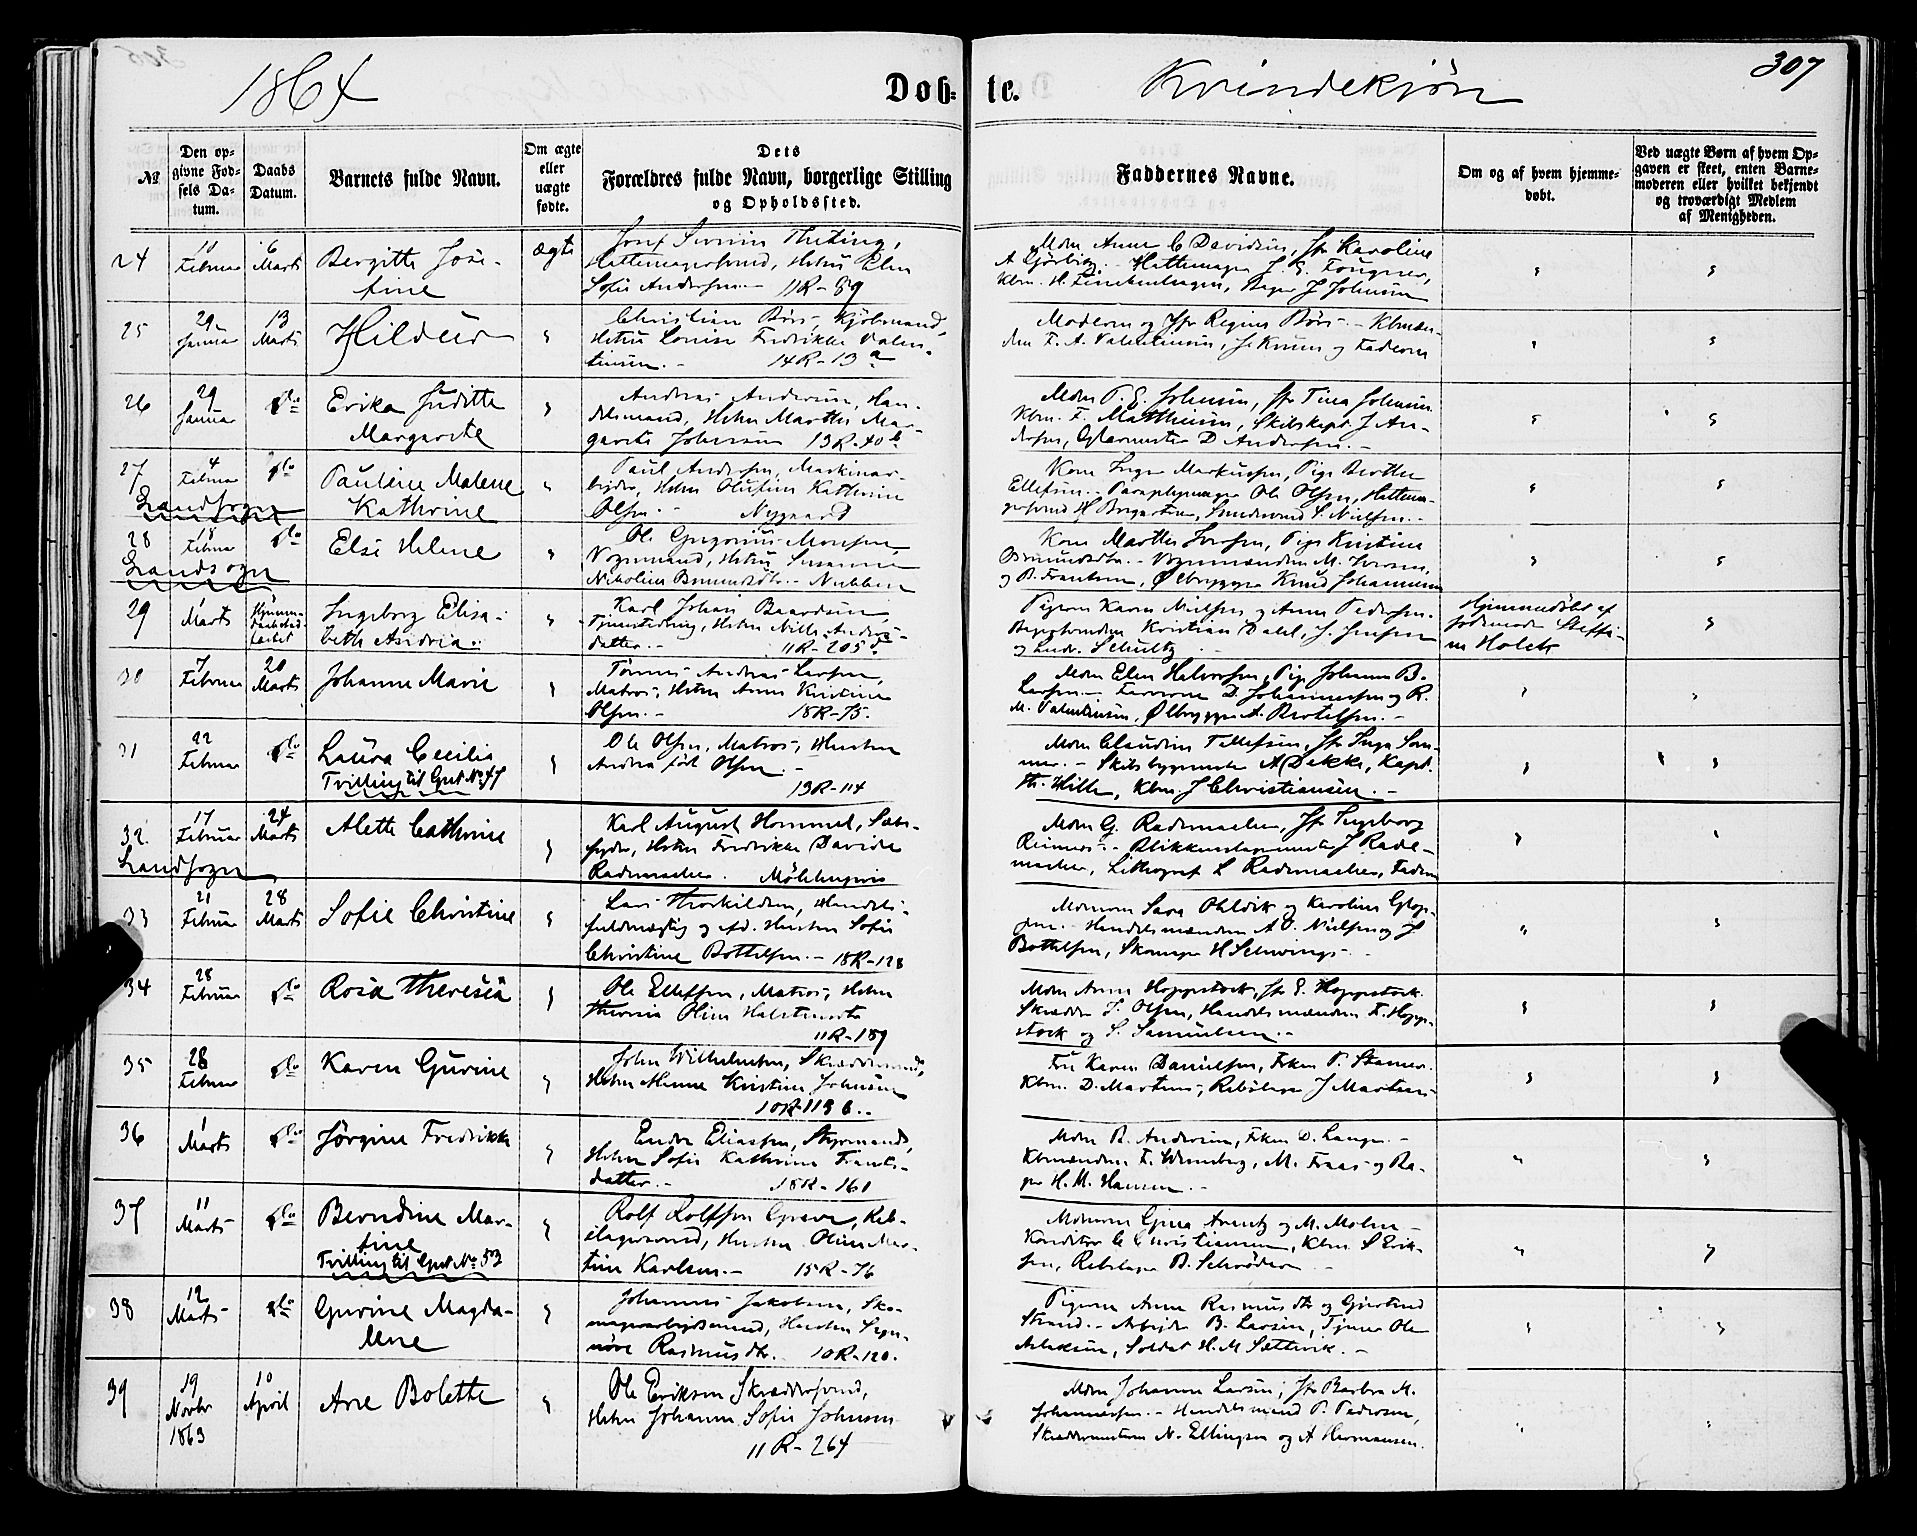 1864
Døb-
te.
Kvindekjøn
307
No
Den op-
givne Fød-
sels Da-
tum.
Daabs
Datum.
Barnets fulde Navn.
Om ægte
eller
uægte
fødte.
Dets
Forældres fulde Navn, borgerlige Stilling
og Opholdssted.
Faddernes Navne.
Om og af hvem hjemme-
døbt.
Ved uægte Børn af hvem Op-
gaven er skeet, enten Barne-
moderen eller hvilket bekjendt
og troværdigt Medlem
af Menigheden.
24
11
Februar
6
Marts
Bergitte Jose-
fine
ægte
Josef Severin
Hattemagersvend, Hstru Elen
Sofie Andersen 11R-89
Mdm Anne C Davidsen, Jfr Karoline
Hattemager J. E. Fougner,
Kbm. H. Finckenhagen, Bager J Johnsen
25
29
Januar
13
Marts
Hildur
Christian Børs, Kjøbmand,
Hstru Louise Fredrikke Valen-
tinsen. 14R-13a
Moderen og Jfr Regine Børs. - Kbmæn-
dene F. A. Valentinsen, J. Krum og Faderen
26
29
Januar
do
Erika Juditte
Margarete
Andreas Andersen, Han-
delsmand, Hstru Marthe Mar-
garete Johnsen 13R-40b
Mdm P. E. Johnsen, Jfr Tina Johnsen
Kbm. F. Matthiesen, Skibskapt J An-
dersen, Glarmester D Andersen.
27
4
Februar
do
Pauline Malene
Kathrine
Landsogn
Paul Andersen, Maskinar-
beider, Hstru Olufine Kathrine
Olsen. Nygaard
Kone Inger Markussen, Pige Berthe
Ellefsen. - Paraplymager Ole Olsen, Hattema-
gersvend H Borgersen, Smedesvend S. Nielsen.
28
18
Februar
do
Else Helene
Landsogn
Ole Gregorius Monsen
Vognmand, Hstru Susanne
Nikoline Nubben
Kone Marthe Iversen, Pige Kristine
Vognmændene M. Iversen,
og B. Frantsen, Ølbrygger Knud Johannesen
29
1
Marts
Ingeborg Elisa-
beth Andrea
Karl Johan Baardsen
Hstru Nille Andreas-
datter. 11R-205
Pigerne Karen Nielsen og Anne Pedersen.
Bagersvendene Kristian Dahl, J. Jensen
og Schultz
Hjemmedøbt af
Jordemoder Steffi-
ne Holck
30
7
Februar
20
Marts
Johanne Marie
Tønnes Andreas Larsen,
Matros, Hstru Anne Kristine
Olsen. 18R-75.
Mdm Elen Halvorsen, Pige Johanne B.
Larsen. D. Johannessen og R.
M. Valentinsen, Ølbrygger A. Bertelsen.
31
22
Februar
do
Laura Cecilia
Tvilling til Gut No 47
Ole Olsen, Matros, Hustru
Andrea født Olsen.
13R-114
Mdm Claudine Tellefsen, Jfr Inga Som-
mer. - Skibsbygmester A Dekke, Kapt.
Th. Hille, Kbm. J Christiansen.
32
17
Februar
24
Marts
Alette Cathrine
Landsogn
Karl August Hommel,
Hstru Fredrikke Davide
Rademacher. Møhlenpris
Mdm G. Rademacher, Jfr Ingeborg
Reimers. Blikkenslagermester J Rade-
macher, Lithograf L Rademacher, Faderen
33
21
Februar
28
Marts
Sofie Christine
Lars Thorkildsen, Handels-
fuldmægtig og Hustru Sofie
Christine Bottelsen. - 18R-128
Mdmerne Sara Ohldik og Karoline
Handelsmændene A O. Nielsen og J
Bottelsen, Skomager H Schwings
34
28
Februar
do
Rosa Theresia
Ole Ellefsen, Matros, Hstru
Theresia Oline Halstensdtr
11R-189
Mdm Anna Hoppestock, Jfr E. Hoppestock.
Skrædder J. Olsen, Handelsmændene F. Hoppe-
stock og S. Samuelsen.
35
28
Februar
do
Karen Gurine
John Wilhelmsen, Skræddersvend,
Hstru Minne Kristine Johnsen
10R-113 b.
Fru Karen Danielsen, Frken P. Stamer.
Kbm. D. Martens, Rebslager J Martens
36
1
Marts
do
Jørgine Fredrikke
Endre Eliassen, Styrmand,
Hstru Sofie Kathrine Frants-
datter. 18R-161
Mdm B. Andersen, Frken D. Langen.
Kbmændene F. Wernberg, M. Fraas og Ka-
H. M. Hansen.
37
11
Marts
do
Berndine Mar-
tine
Tvilling til Gut No 53
Rolf Rolfsen Greve, Reb-
slagersvend, Hustru Oline Mar-
tine Karlsen. 15R-76
Mdmerne Gjina Arentz og M. Molne
Konditor C Christiansen, Kbm S Erik-
sen, Rebslager B. Schrøder
38
12
Marts
do
Gurine Magda-
lene
Johannes Jakobsen, Sko-
magerarbeidsmand, Hustru Syn-
nøve Rasmusdtr. 10R-120.
Pigerne Anne Rasmusdtr og Gjertrud
Strand. - Arbeider B. Larsen, Tjener Ole
Aslaksen, Soldat H. M. Sættevik.
39
19
Novbr
1863
10
April
Ane Bolette
Ole Eriksen Skræddersvend,
Hstru Johanne Sofie Johnsen
11R-264
Mdm Johanne Larsen, Jfr Barbra M.
Johannessen. - Handelsmand P. Pedersen,
Skræddermestrene N. Ellingsen og A Hermansen.